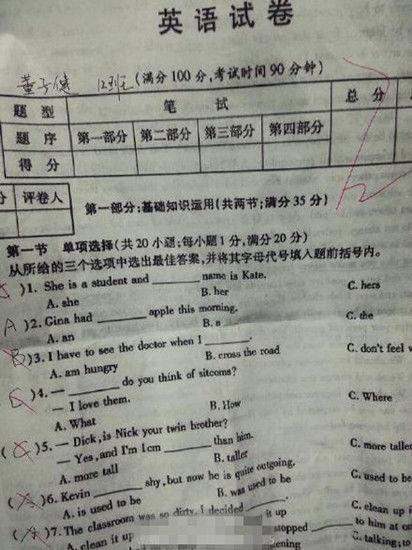 英语试卷
董子健 12班 (满分100分,考试时间90分钟)
题 型 笔 试 总 分
题 序 第一部分 第二部分 第三部分 第四部分
得 分
分 评卷人
第一部分:基础知识运用(共两节;满分35分)
第一节 单项选择(共20小题;每小题1分,满分20分)
从所给的三个选项中选出最佳答案,并将其字母代号填入题前括号内。
)1. She is a student and ______ name is Kate.
A. she B. her C. hers
A )2. Gina had ______ apple this morning.
A. an B. a C. the
B )3. I have to see the doctor when I ______.
A. am hungry B. cross the road C. don't feel
C )4. — ______ do you think of sitcoms?
— I love them.
A. What B. How C. Where
( )5. — Dick, is Nick your twin brother?
— Yes, and I'm 1cm ______ than him.
A. more tall B. taller C. more taller
( )6. Kevin ______ shy, but now he is quite outgoing.
A. is used to be B. was used to be C. used to be
( )7. The classroom was so dirty. I decided ______ it up
A. clean it up C. clean up
stopped ______ to him at
C. talking; to